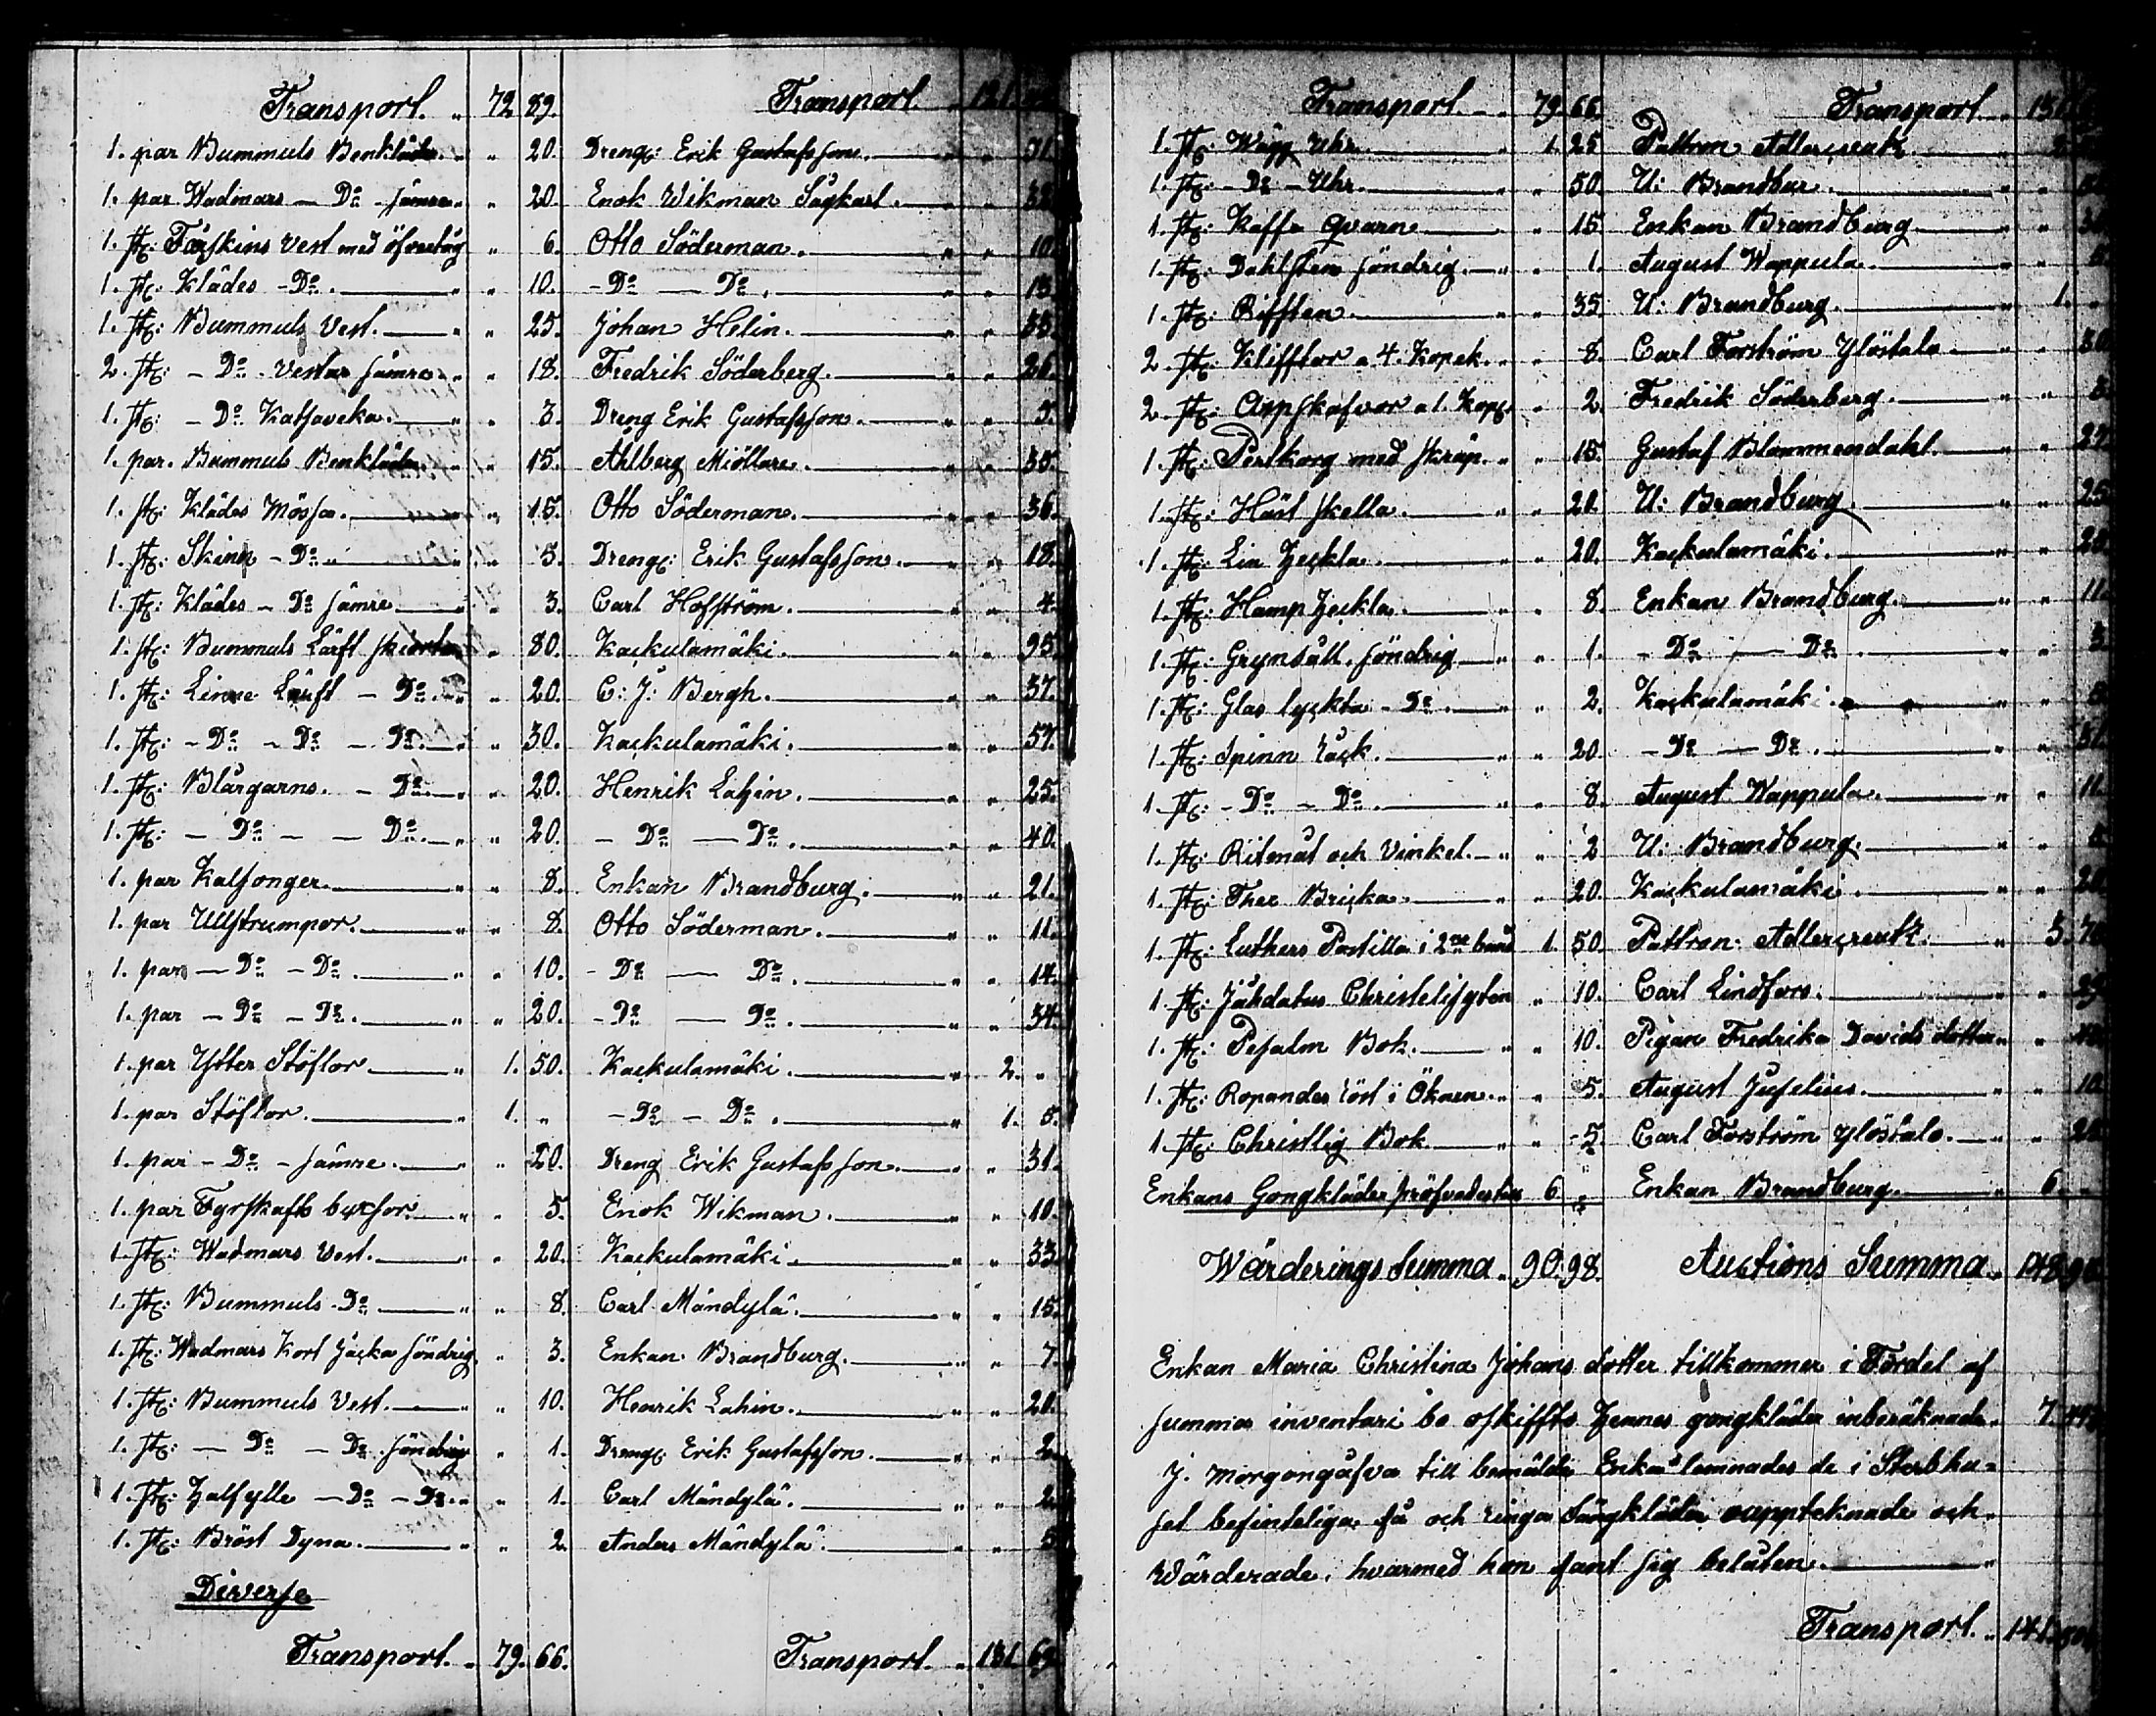 Transport. „ 72 89. Transport. „ 121.
1. par Bummuls Benkläder. „ „ 20. Dreng: Erik Gustafsson. „ „ 31.
1. par Wadmars — Do - sämre „ „ 20. Enok Wikman Sågkarl. „ „ 32.
1. st: Fårskins Vest med öfvertåg „ 6. Otto Söderman. „ „ 10.
1. st: Klädes - Do. „ „ 10. - Do — Do. „ „ 13.
1. st: Bummuls Vest. „ „ 25. Johan Helin. „ „ 33.
2. st: - Do. Vestar sämre. „ „ 18. Fredrik Söderberg. „ „ 26.
1. st: - Do. Katsaveka. „ „ 3. Dreng Erik Gustafsson. „ „ 5.
1. par. Bummuls Benkläder. „ „ 15. Ahlberg Miöllare. „ „ 35.
1. st: Klädes Mössa. „ „ 15. Otto Söderman. „ „ 36.
1. st: Skinn - Do „ „ 5. Dreng: Erik Gustafsson. „ „ 18.
1. st: Klädes - Do sämre „ „ 3. Carl Hofström. „ „ 4.
1. st: Bummuls Lärft skiorta „ 80. Kackulamäki. „ „ 95.
1. st: Linne Lärft - Do. „ „ 20. C: J: Bergh. „ „ 37.
1. st: - Do - Do - Do. „ „ 30. Kackulamäki. „ „ 57.
1. st: Blårgarns. - Do. „ „ 20. Henrik Lahin. „ „ 25.
1. st: - Do - - Do. „ „ 20. - Do — Do. „ „ 40.
1. par Kalsonger. „ „ 8. Enkan Brandburg. „ „ 21.
1. par Ullstrumpor. „ „ 8. Otto Söderman. „ „ 11.
1. par — Do - Do. „ „ 10. - Do — Do. „ „ 14.
1. par — Do - Do. „ „ 20. - Do — Do. „ „ 34.
1. par Ytter Stöflor „ 1. 50. Kackulamäki. „ 2. „
1. par Stöflor. „ 1. „ - Do - Do. „ 1. 5.
1. par - Do - sämre. „ „ 20. Dreng Erik Gustafsson. „ „ 31.
1. par Fyrskafts byxsor. „ „ 5. Enok Wikman. „ „ 10.
1. st: Wadmars Vest. „ „ 20. Kackulamäki. „ „ 33.
1. st: Bummuls - Do. „ „ 8. Carl Mändylä. „ „ 15.
1. st: Wadmars Kort Jacka söndrig „ 3. Enkan Brandburg. „ „ 7.
1. st: Bummuls Vest. „ „ 10. Henrik Lahin. „ „ 20.
1. st: — Do — Do. söndrig „ 1. Dreng: Erik Gustafsson. „ „ 2.
1. st: Halfylle — Do - Do. „ „ 1. Carl Mändylä. „ „ 2.
1. st: Bröst Dyna. „ „ 2. Anders Mändylä. „ „ 5
Diverse
Transport. „ 79. 66. Transport. „ 131. 69.
Transport. „ 79. 66. Transport. „ 131.
1. st: Wägg Uhr. „ 1. 25. Pattron Adlercreutz. „
1. st: - Do - Uhr. „ „ 50. U: Brandbur. „ „
1. st: Kaffe Qvarn „ „ 15. Enkan Brandburg „ „
1. st: Dahlsten söndrig. „ „ 1. August Wappula. „ „
1. st: Rifften. „ „ 35. U: Brandburg. „ 1. „
2. st: Klifftor a 4. Kopek. „ „ 8. Carl Forström Ylöstalo „ „ 30.
2. st: Oxpskafvor a 1. Kop: „ 2. Fredrik Söderberg. „ „ 3.
1. st: Perlkorg med skräp. „ „ 15. Gustaf Blommendahl. „ „ 27.
1. st: Häst skella. „ „ 20. U: Brandburg. „ „ 25.
1. st: Lin Heckla. „ „ 20. Kackulamäki. „ „ 20.
1. st: Hamp Heckla. „ „ 8. Enkan Brandburg. „ „ 11.
1. st: Grynsåll. söndrig „ „ 1. - Do — Do. „ „ 3.
1. st: Glas lyckta - Do. „ „ 2. Kackulamäki. „ „
1. st: Spinn Råck. „ „ 20. - Do — Do. „ „ 31.
1. st: - Do - Do. „ „ 8. August Wappula. „ „ 11.
1. st: Ritmåt och Vinkel. „ „ 2 U: Brandburg. „ „
1. st: Thee Bricka. „ „ 20. Kackulamäki. „ „ 20.
1. st: Luthers Postilla i 2ne band 1. 50. Pattron Adlercreutz. „ 3. 70
1. st: Juhdatus Christelisyten „ 10. Carl Lindfors. „ „
1. st: Psalm Bok. „ „ 10. Pigan Fredrika Davids dotter „ „
1. st: Ropandes röst i Öknen. „ „ 5. August Juselius. „ „ 10.
1. st: Christlig Bok. „ „ 5. Carl Forström Ylöstalo. „ „
Enkans Gongkläder pröfvades till 6 „ Enkan Brandburg. „ 6. „
Wärderings Summa „ 90. 98. Auctions Summa „ 148. 90
Enkan Maria Christina Johans dotter tillkommer i Fördel af
summa inventari bo oskiffto hennes gongkläder inberäknade. 7.
J. morgongåfva till bemälde Enka lemnades de i Sterbhu=
set befinteliga få och ringa Sängkläder oupptecknade och
Wärderade, hvarmed hon fant sig belåten.
Transport. „ 141.